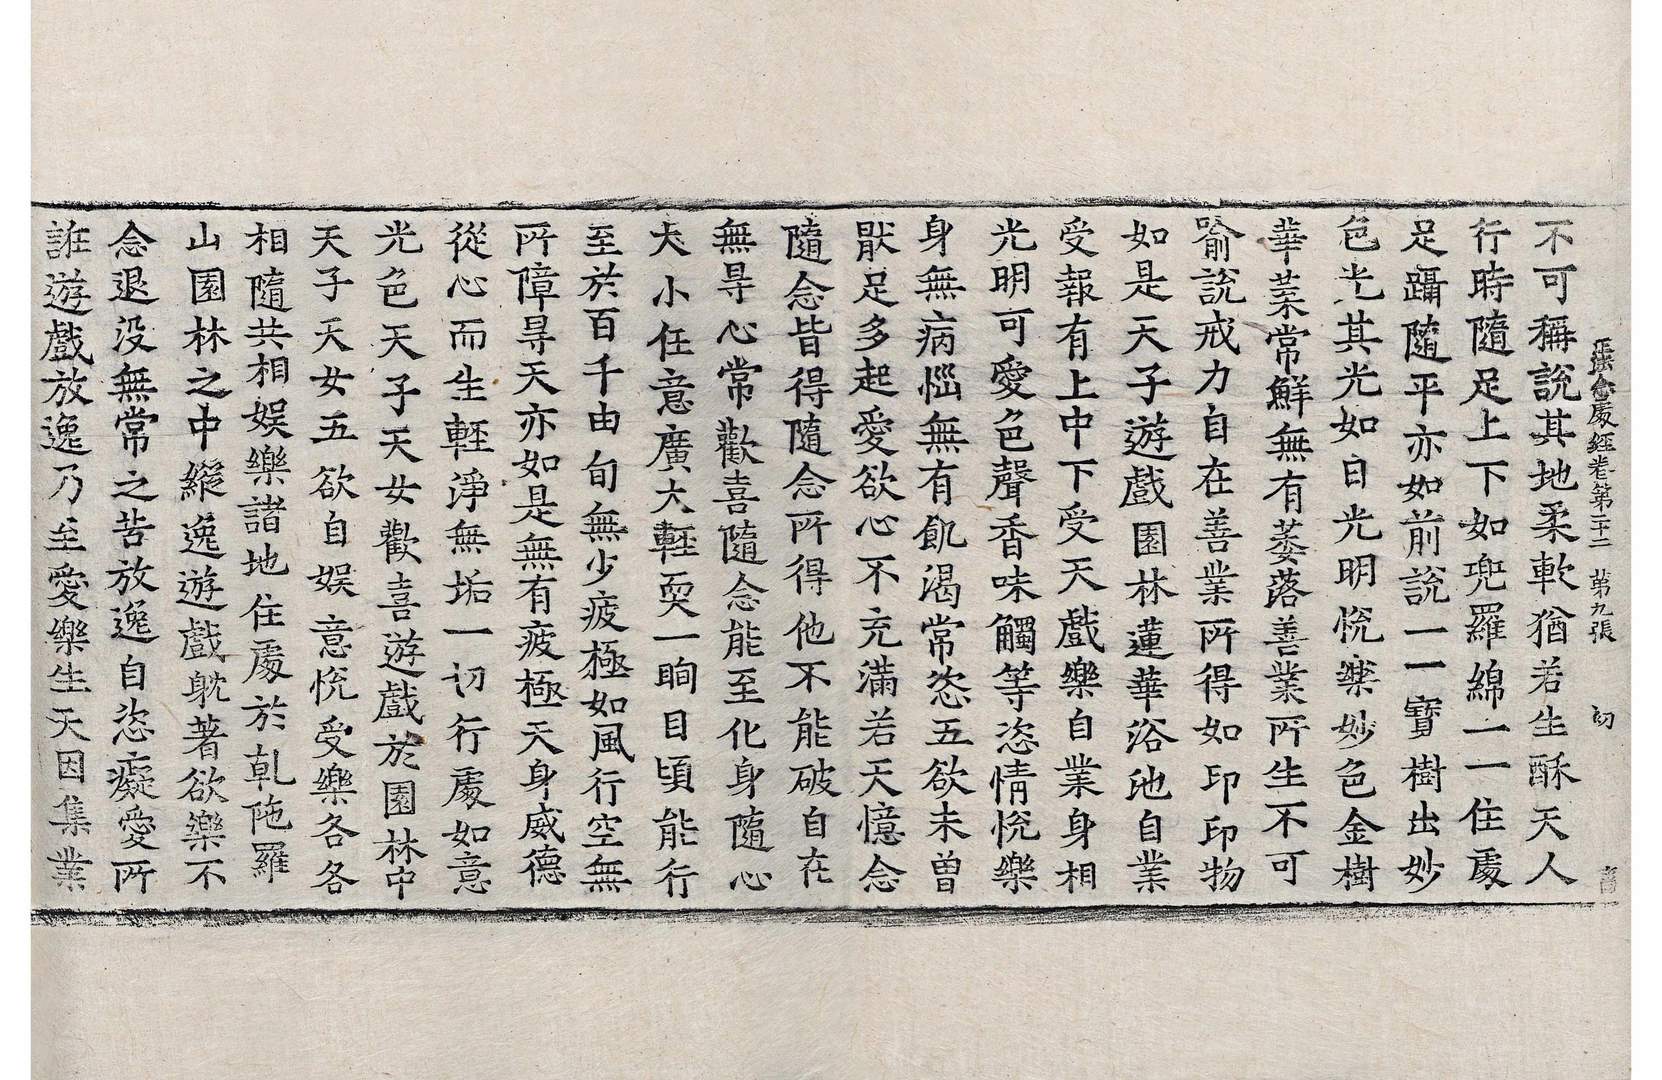 正法念處經卷第二十二 第九張 初
不可稱說其地柔軟猶若生酥天人
行時隨足上下如兜羅綿一一住處
足躡隨平亦如前說一一寶樹出妙
色光其光如日光明恱樂妙色金樹
華菓常鮮無有萎落善業所生不可
喻說戒力自在善業所得如印印物
如是天子遊戲園林蓮華浴池自業
受報有上中下受天戲樂自業身相
光明可愛色聲香味觸等恣情恱樂
身無病惱無有飢渴常恣五欲未曾
猒足多起愛欲心不充滿若天憶念
隨念皆得隨念所得他不能破自在
無㝵心常歡喜隨念能至化身隨心
大小任意廣大輕耎一眴目頃能行
至於百千由旬無少疲極如風行空無
所障㝵天亦如是無有疲極天身威德
從心而生輕淨無垢一切行處如意
光色天子天女歡喜遊戲於園林中
天子天女五欲自娛意恱受樂各各
相隨共相娛樂諸地住處於乹陁羅
山園林之中縱逸遊戲躭著欲樂不
念退没無常之苦放逸自恣癡愛所
誑遊戲放逸乃至愛樂生天因集業